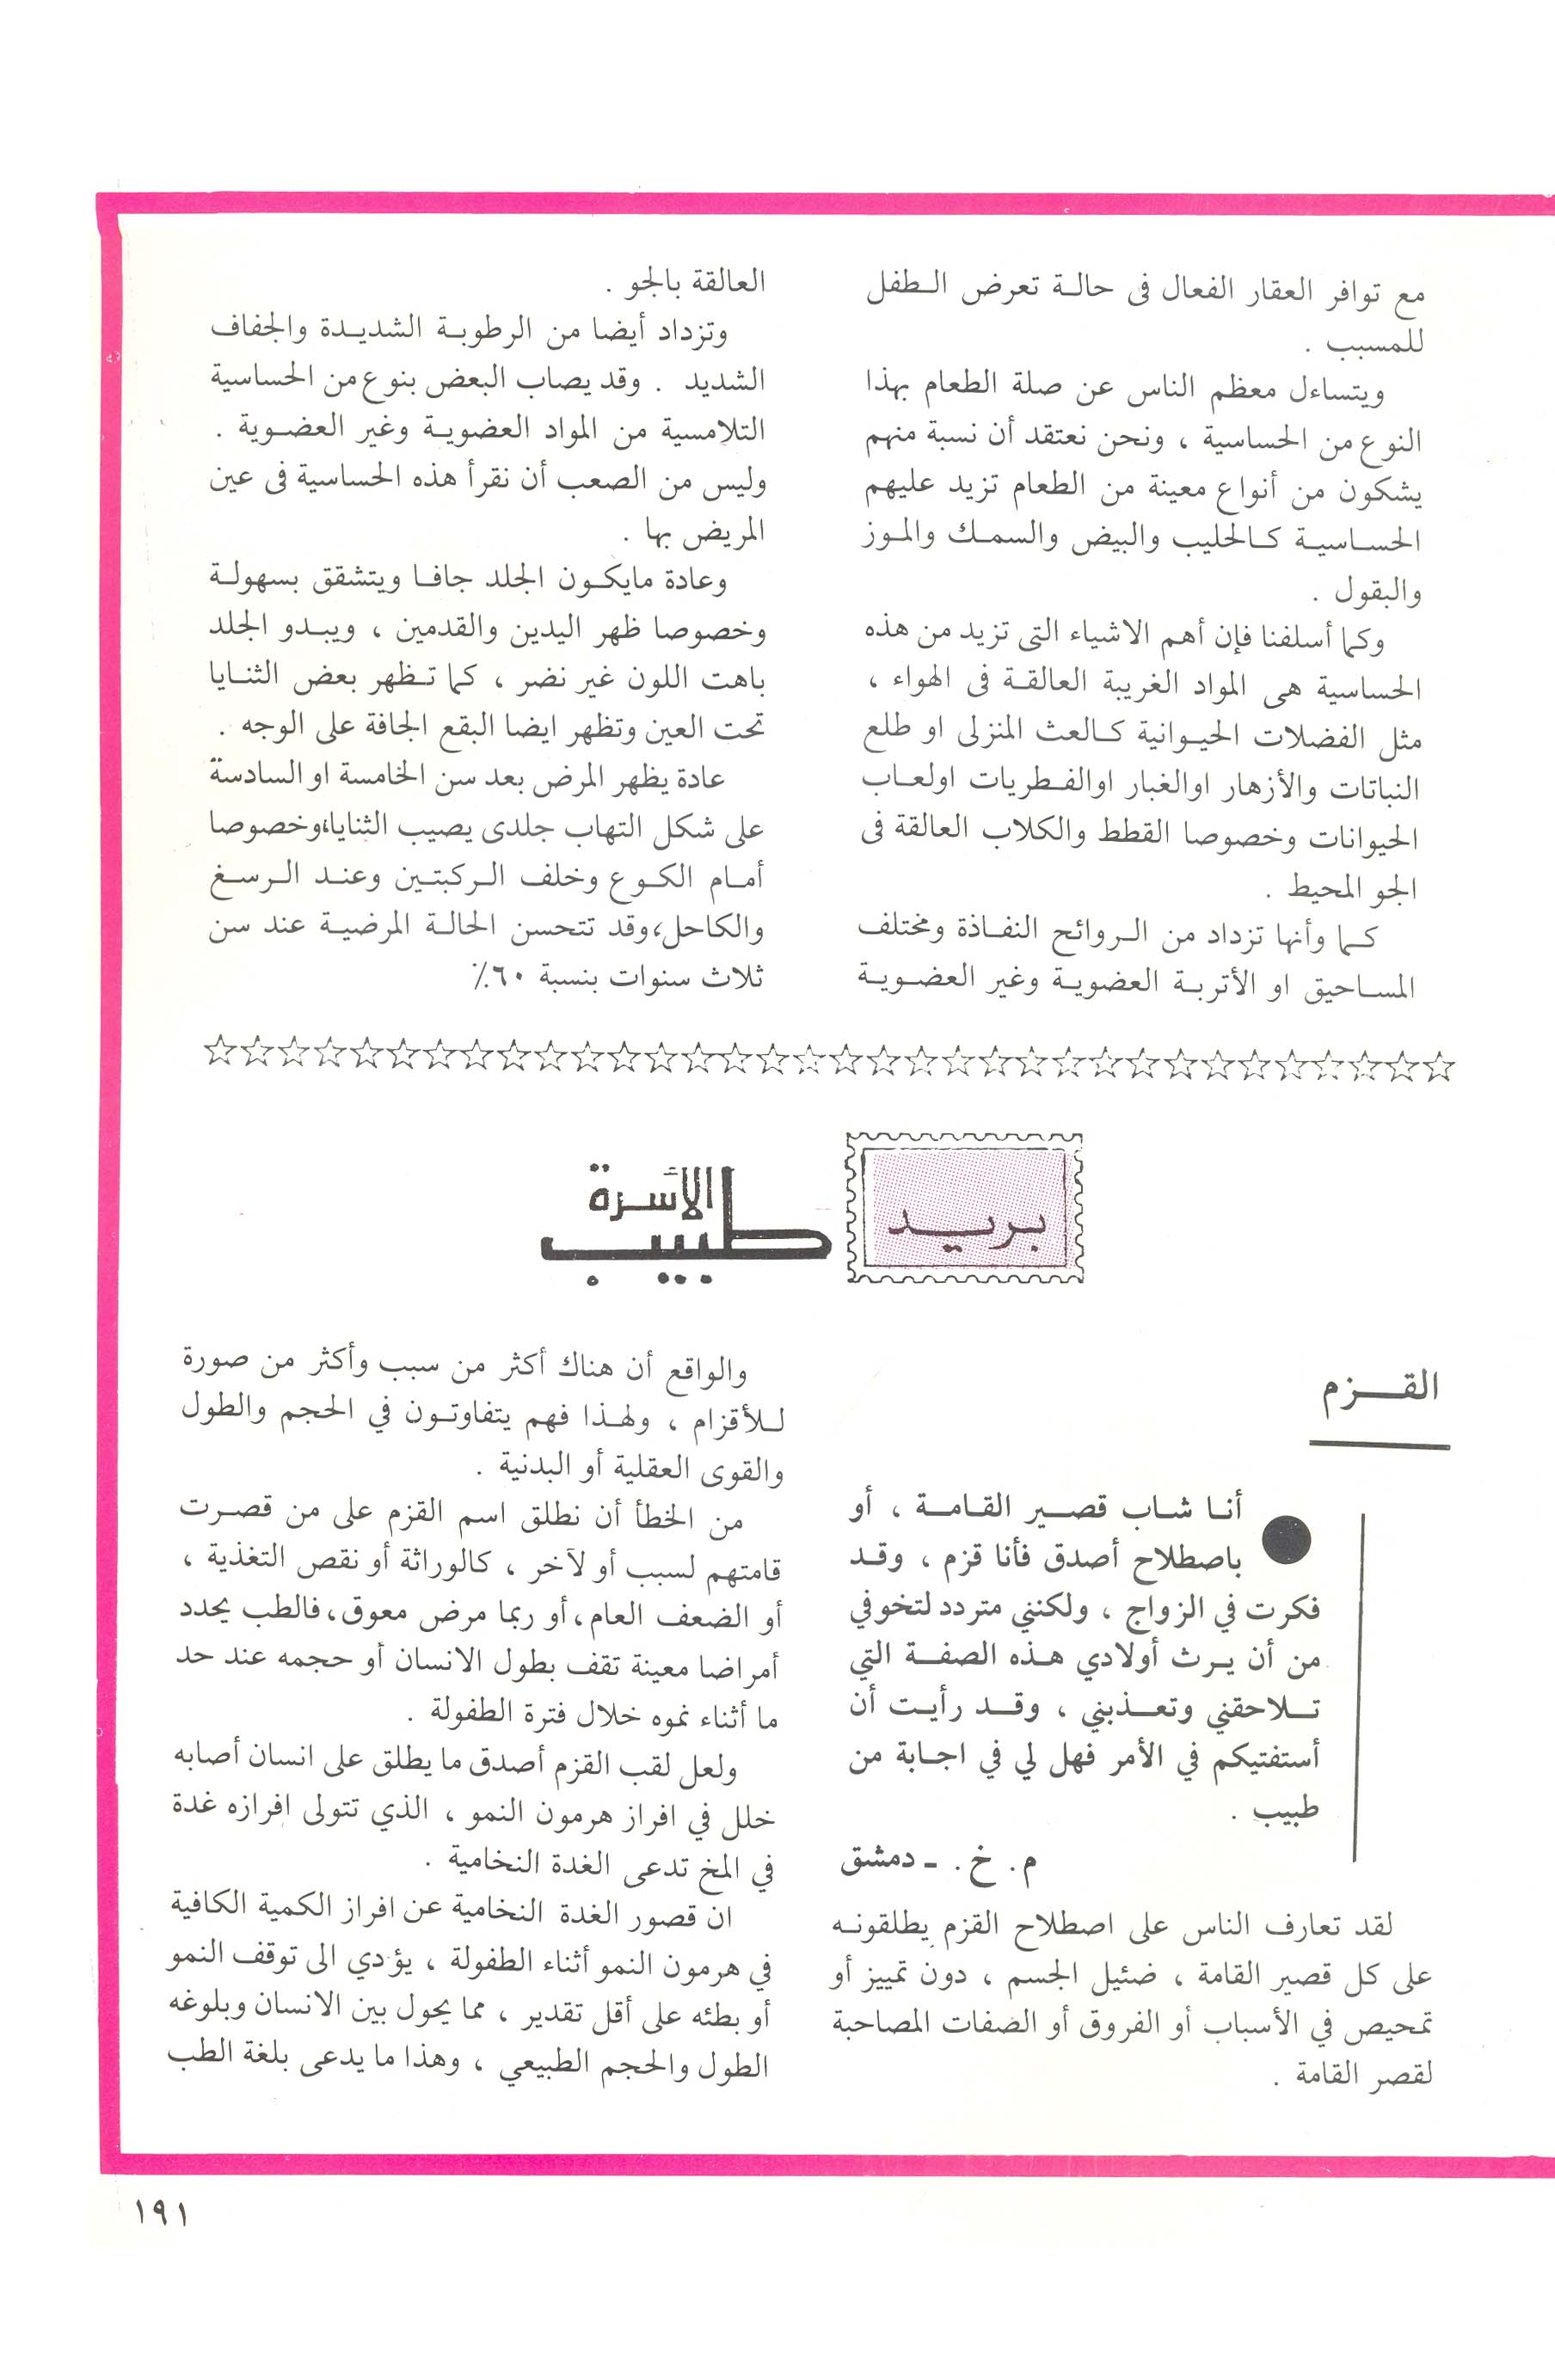 مع توافر العقار الفعال فى حالة تعرض الطفل
للمسبب .
ويتساءل معظم الناس عن صلة الطعام بهذا
النوع من الحساسية ، ونحن نعتقد أن نسبة منهم
يشكون من أنواع معينة من الطعام تزيد عليهم
الحساسية كالحليب والبيض والسمك والموز
والبقول .
وكما أسلفنا فإن أهم الاشياء التى تزيد من هذه
الحساسية هى المواد الغريبة العالقة فى الهواء ،
مثل الفضلات الحيوانية كالعث المنزلى او طلع
النباتات والأزهار اوالغبار اوالفطريات اولعاب
الحيوانات وخصوصا القطط والكلاب العالقة فى
الجو المحيط .
كما وأنها تزداد من الروائح النفاذة ومختلف
المساحيق او الأتربة العضوية وغير العضوية
العالقة بالجو .
وتزداد أيضا من الرطوبة الشديدة والجفاف
الشديد . وقد يصاب البعض بنوع من الحساسية
التلامسية من المواد العضوية وغير العضوية .
وليس من الصعب أن نقرأ هذه الحساسية فى عين
المريض بها .
وعادة مايكون الجلد جافا ويتشقق بسهولة
وخصوصا ظهر اليدين والقدمين ، ويبدو الجلد
باهت اللون غير نضر ، كما تظهر بعض الثنايا
تحت العين وتظهر ايضا البقع الجافة على الوجه .
عادة يظهر المرض بعد سن الخامسة او السادسة
على شكل التهاب جلدى يصيب الثنايا،وخصوصا
أمام الكوع وخلف الركبتين وعند الرسغ
والكاحل،وقد تتحسن الحالة المرضية عند سن
ثلاث سنوات بنسبة ٦٠٪
بريد
طبيب الأسرة
القزم
أنا شاب قصير القامة ، أو
باصطلاح أصدق فأنا قزم ، وقد
فكرت في الزواج ، ولكنني متردد لتخوفي
من أن يرث أولادي هذه الصفة التي
تلاحقني وتعذبني ، وقد رأيت أن
أستفتيكم في الأمر فهل لي في اجابة من
طبيب .
م. خ. - دمشق
لقد تعارف الناس على اصطلاح القزم يطلقونه
على كل قصير القامة ، ضئيل الجسم ، دون تمييز أو
تمحيص في الأسباب أو الفروق أو الصفات المصاحبة
لقصر القامة .
والواقع أن هناك أكثر من سبب وأكثر من صورة
للأقزام ، ولهذا فهم يتفاوتون في الحجم والطول
والقوى العقلية أو البدنية .
من الخطأ أن نطلق اسم القزم على من قصرت
قامتهم لسبب أو لآخر ، كالوراثة أو نقص التغذية ،
أو الضعف العام، أو ربما مرض معوق، فالطب يحدد
أمراضا معينة تقف بطول الانسان أو حجمه عند حد
ما أثناء نموه خلال فترة الطفولة .
ولعل لقب القزم أصدق ما يطلق على انسان أصابه
خلل في افراز هرمون النمو ، الذي تتولى افرازه غدة
في المخ تدعى الغدة النخامية .
ان قصور الغدة النخامية عن افراز الكمية الكافية
في هرمون النمو أثناء الطفولة ، يؤدي الى توقف النمو
أو بطئه على أقل تقدير ، مما يحول بين الانسان وبلوغه
الطول والحجم الطبيعي ، وهذا ما يدعى بلغة الطب
١٩١